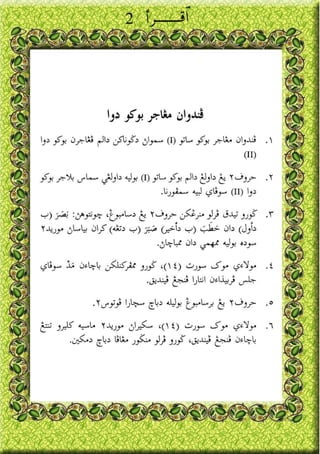 أقــــرأ 2
ڤندوان مڠاجر بوكو دوا
١. ڤندوان مڠاجر بوكو ساتو (I) سموان دݢوناكن دالم ڤڠاجرن بوكو دوا
(II)
٢. حروف٢ يڠ داولڠ دالم بوكو ساتو (I) بوليه داولڠي سماس بلاجر بوكو
دوا (II) سوڤاي لبيه سمڤورنا.
٣. ݢورو تيدق ڤرلو منرڠكن حروف٢ يڠ دسامبوڠ، چونتوهن: بَصَرَ (ب
دأول) دان خَطَبَ (ب دأخير) صَبَرَ (ب دتڠه) كران بياسان موريد٢
سوده بوليه ممهمي دان ممباچان.
٤. مولاءي موک سورت (١٤)، ݢورو ممڤركنلكن باچاءن مَدْ سوڤاي
جلس ڤربيذاءن انتارا ڤنجڠ ڤينديق.
٥. حروف٢ يڠ برسامبوڠ بوليله دباچ سچارا ڤوتوس٢.
٦. مولاءي موک سورت (١٤)، سكيران موريد٢ ماسيه كليرو تنتڠ
باچاءن ڤنجڠ ڤينديق، ݢورو ڤرلو منݢور مڠاڤا دباچ دمكين.